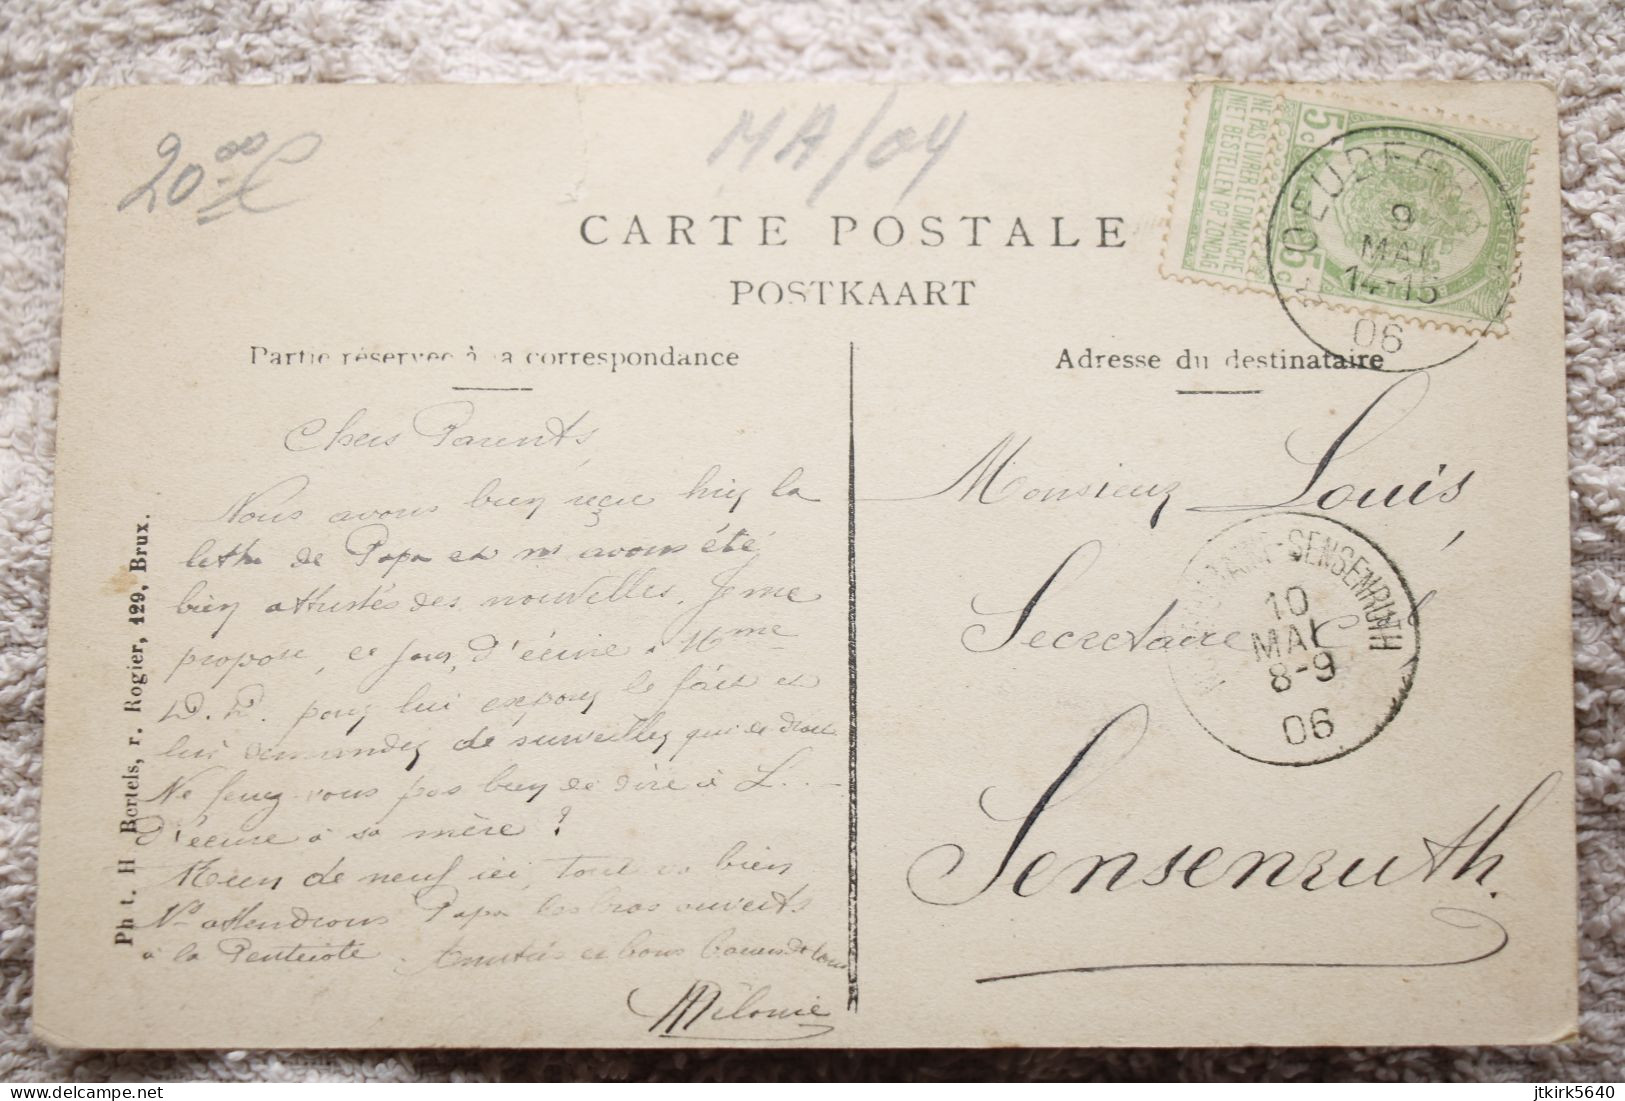 20.00 €
MA/04
CARTE POSTALE
POSTKAART
NE PAS LIVRER LE DIMANCHE
NIET BESTELLEN OP ZONDAG
5 c 5 c
9
MAI
14-15
06
Partie réservée à la correspondance
Adresse du destinataire
Chers Parents
Nous avons bien reçu hier la
lettre de Papa et ns avons été
bien attristés des nouvelles. Je me
propose, ce jour, d'écrire à Mme
D. D. pour lui exposer le fait et
lui demander de surveiller
Ne feriez-vous pas bien de dire à L...
d'écrire à sa mère ?
Rien de neuf ici, tout va bien
Ns attendrons Papa les bras ouverts
à la Pentecôte. Amitiés et bons baisers de tous
Mélanie
Monsieur Louis
Secrétaire Cal
Sensenruth.
SENSENRUTH
10
MAI
8-9
06
Ph t. H Bertels, r. Rogier, 129, Brux.
jtkirk5640